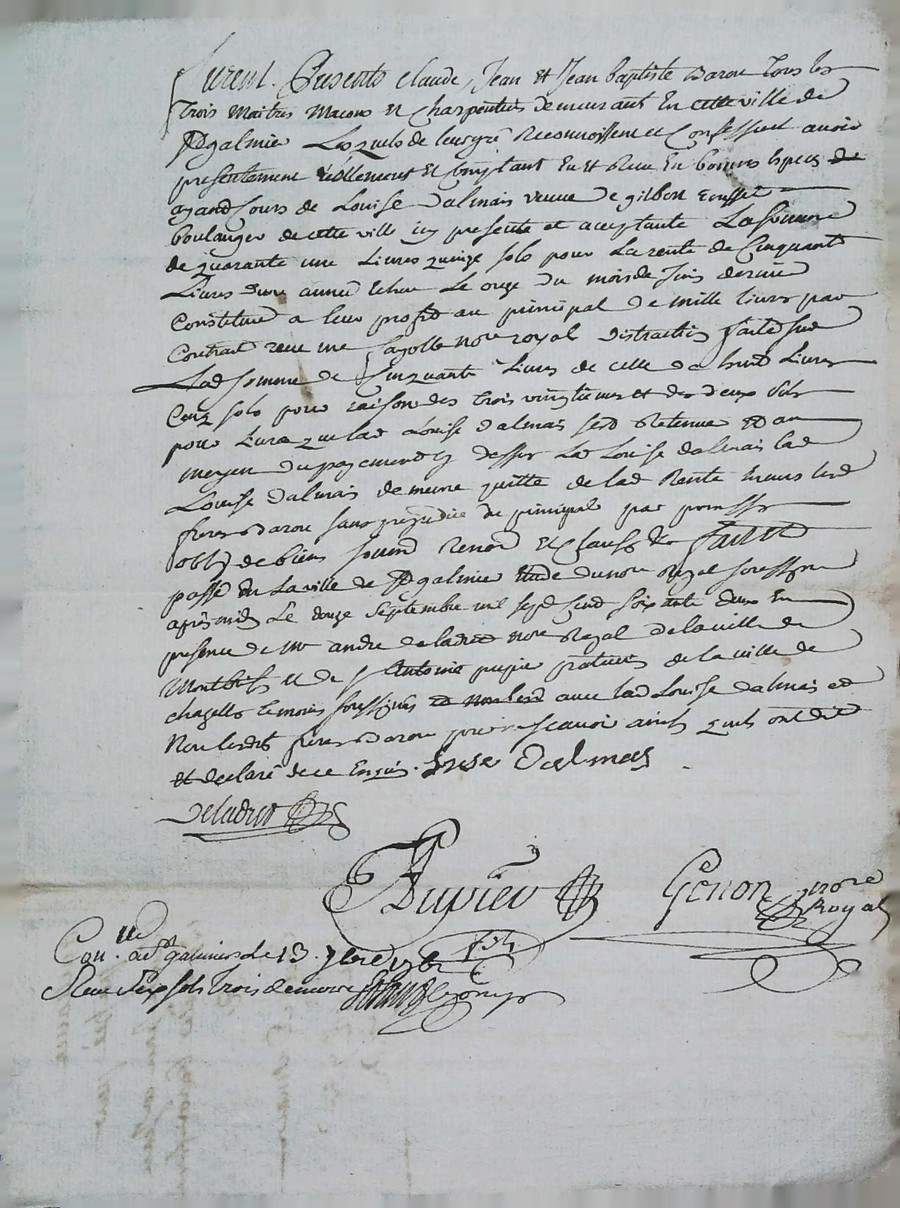 furent Presents Claude, Jean et Jean baptiste Darou tous les
trois Maitres Macons et Charpentiers demeurant En cette ville de
St galmier Lesquels de leur gré Reconnoissent et Confessent avoir
presentement réellement et Comptant Eu et Receu En bonnes Especes de
ayand Cours de Louise dalmais veuve de gilbert
boulanger de cette ville icy presente et acceptante La somme
de quarante une Livres quinze sols pour La rente de Cinquante
Livres d'une année Echue Le onze du mois de Juin dernier
Constitué a leur profit au principal de mille livres par
Contrat receu me fayolle nore royal distraction faite sur
Lad somme de Cinquante Livres de celle de huit Livres
Cinq sols pour raison des trois vingtiemes et des deux sols
pour Livre que lad Louise dalmais serd Retenue et au
moyen du payement cy dessus La Louise dalmais lad
Louise dalmais demeure quitte de lad Rente Envers lesd
freres Darou sans prejudice du principal par promesse
oblig de biens soumd Renond et Clauses &c fait et
passé En La ville de St galmier Etude du nore Royal soussigné
après midi Le douze septembre mil sept Cent soixante deux En
presence de Mr andre deladret nore Royal de la ville de
Montbrison et de s Antoine pupier praticien de la ville de
chazelles temoins soussignés et non lesd avec lad Louise dalmais et
Non lesdits freres Darou pour ne scavoir ainsi quils ont dit
et declaré de ce Enquis. Dalmas
Deladret
Pupier Genon nore
Royal
Con. lle a St galmier le 13. 7bre 1762
Receu sols trois deniers